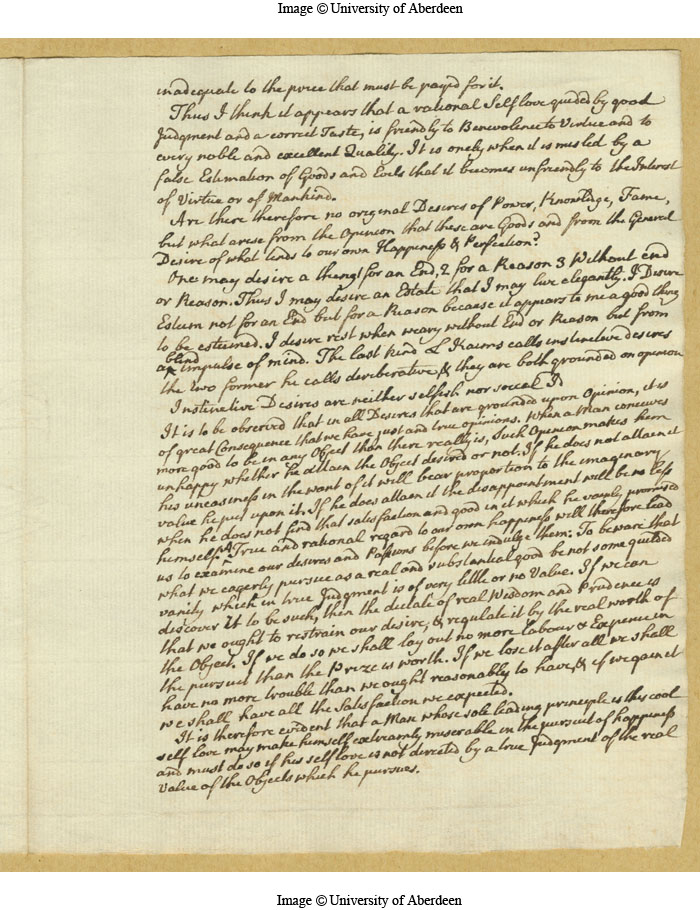 Image © University of Aberdeen
inadequate to the price that must be payed for it.
Thus I think it appears that a rational Self love guided by good
Judgment and a correct Taste, is friendly to Benevolence to Virtue and to
every noble and excellent Quality. It is onely when it is misled by a
false Estimation of Goods and Evils that it becomes unfriendly to the Interest
of Virtue or of Mankind.
Are there therefore no original Desires of Power, Knowledge, Fame,
but what arise from the Opinion that these are Goods and from the General
Desire of what tends to our own Happiness & Perfection?
One may desire a thing 1 for an End, 2 for a Reason 3 Without end
or Reason. Thus I may desire an Estate that I may live elegantly. I Desire
Esteem not for an End but for a Reason because it appears to me a good thing
to be esteemed. I desire rest when weary without End or Reason but from
blind
a impulse of mind. The last kind L Kaims calls instinctive desires
the two former he calls deliberative, & they are both grounded on opinion
Instinctive Desires are neither selfish nor social Id
It is to be observed that in all Desires that are grounded upon Opinion, it is
of great Consequence that we have just and true opinions. When a Man conceives
more good to be in any Object than there really is, Such Opinion makes him
unhappy whether he attain the Object desired or not. If he does not attain it
his uneasiness in the want of it will bear proportion to the imaginary
value he put upon it. If he does attain it the disappointment will be no less
when he does not find that satisfaction and good in it which he vainly promised
himself. A True and rational regard to our own happiness will therefore lead
us to examine our desires and Passions before we indulge them. To beware that
what we eagerly pursue as a real and substantial good be not some guilded
vanity which in true Judgment is of very little or no Value. If we can
discover it to be such, then the dictate of real Wisdom and Prudence is
that we ought to restrain our desire, & regulate it by the real worth of
the Object. If we do so we shall lay out no more Labour & Expence in
the pursuit than the Prize is worth. If we lose it after all we shall
have no more trouble than we ought reasonably to have, & if we gain it
we shall have all the Satisfaction we expected.
It is therefore evident that a Man whose sole leading principle is this cool
self love may make himself extreamly miserable in the pursuit of happiness
and must do so if his self love is not directed by a true Judgment of the real
Value of the Objects which he pursues.
Image © University of Aberdeen